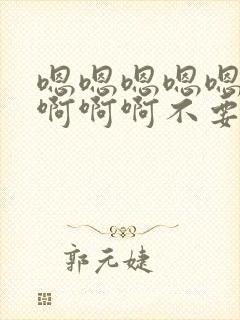 嗯嗯嗯嗯嗯
啊啊啊不要
郭元婕